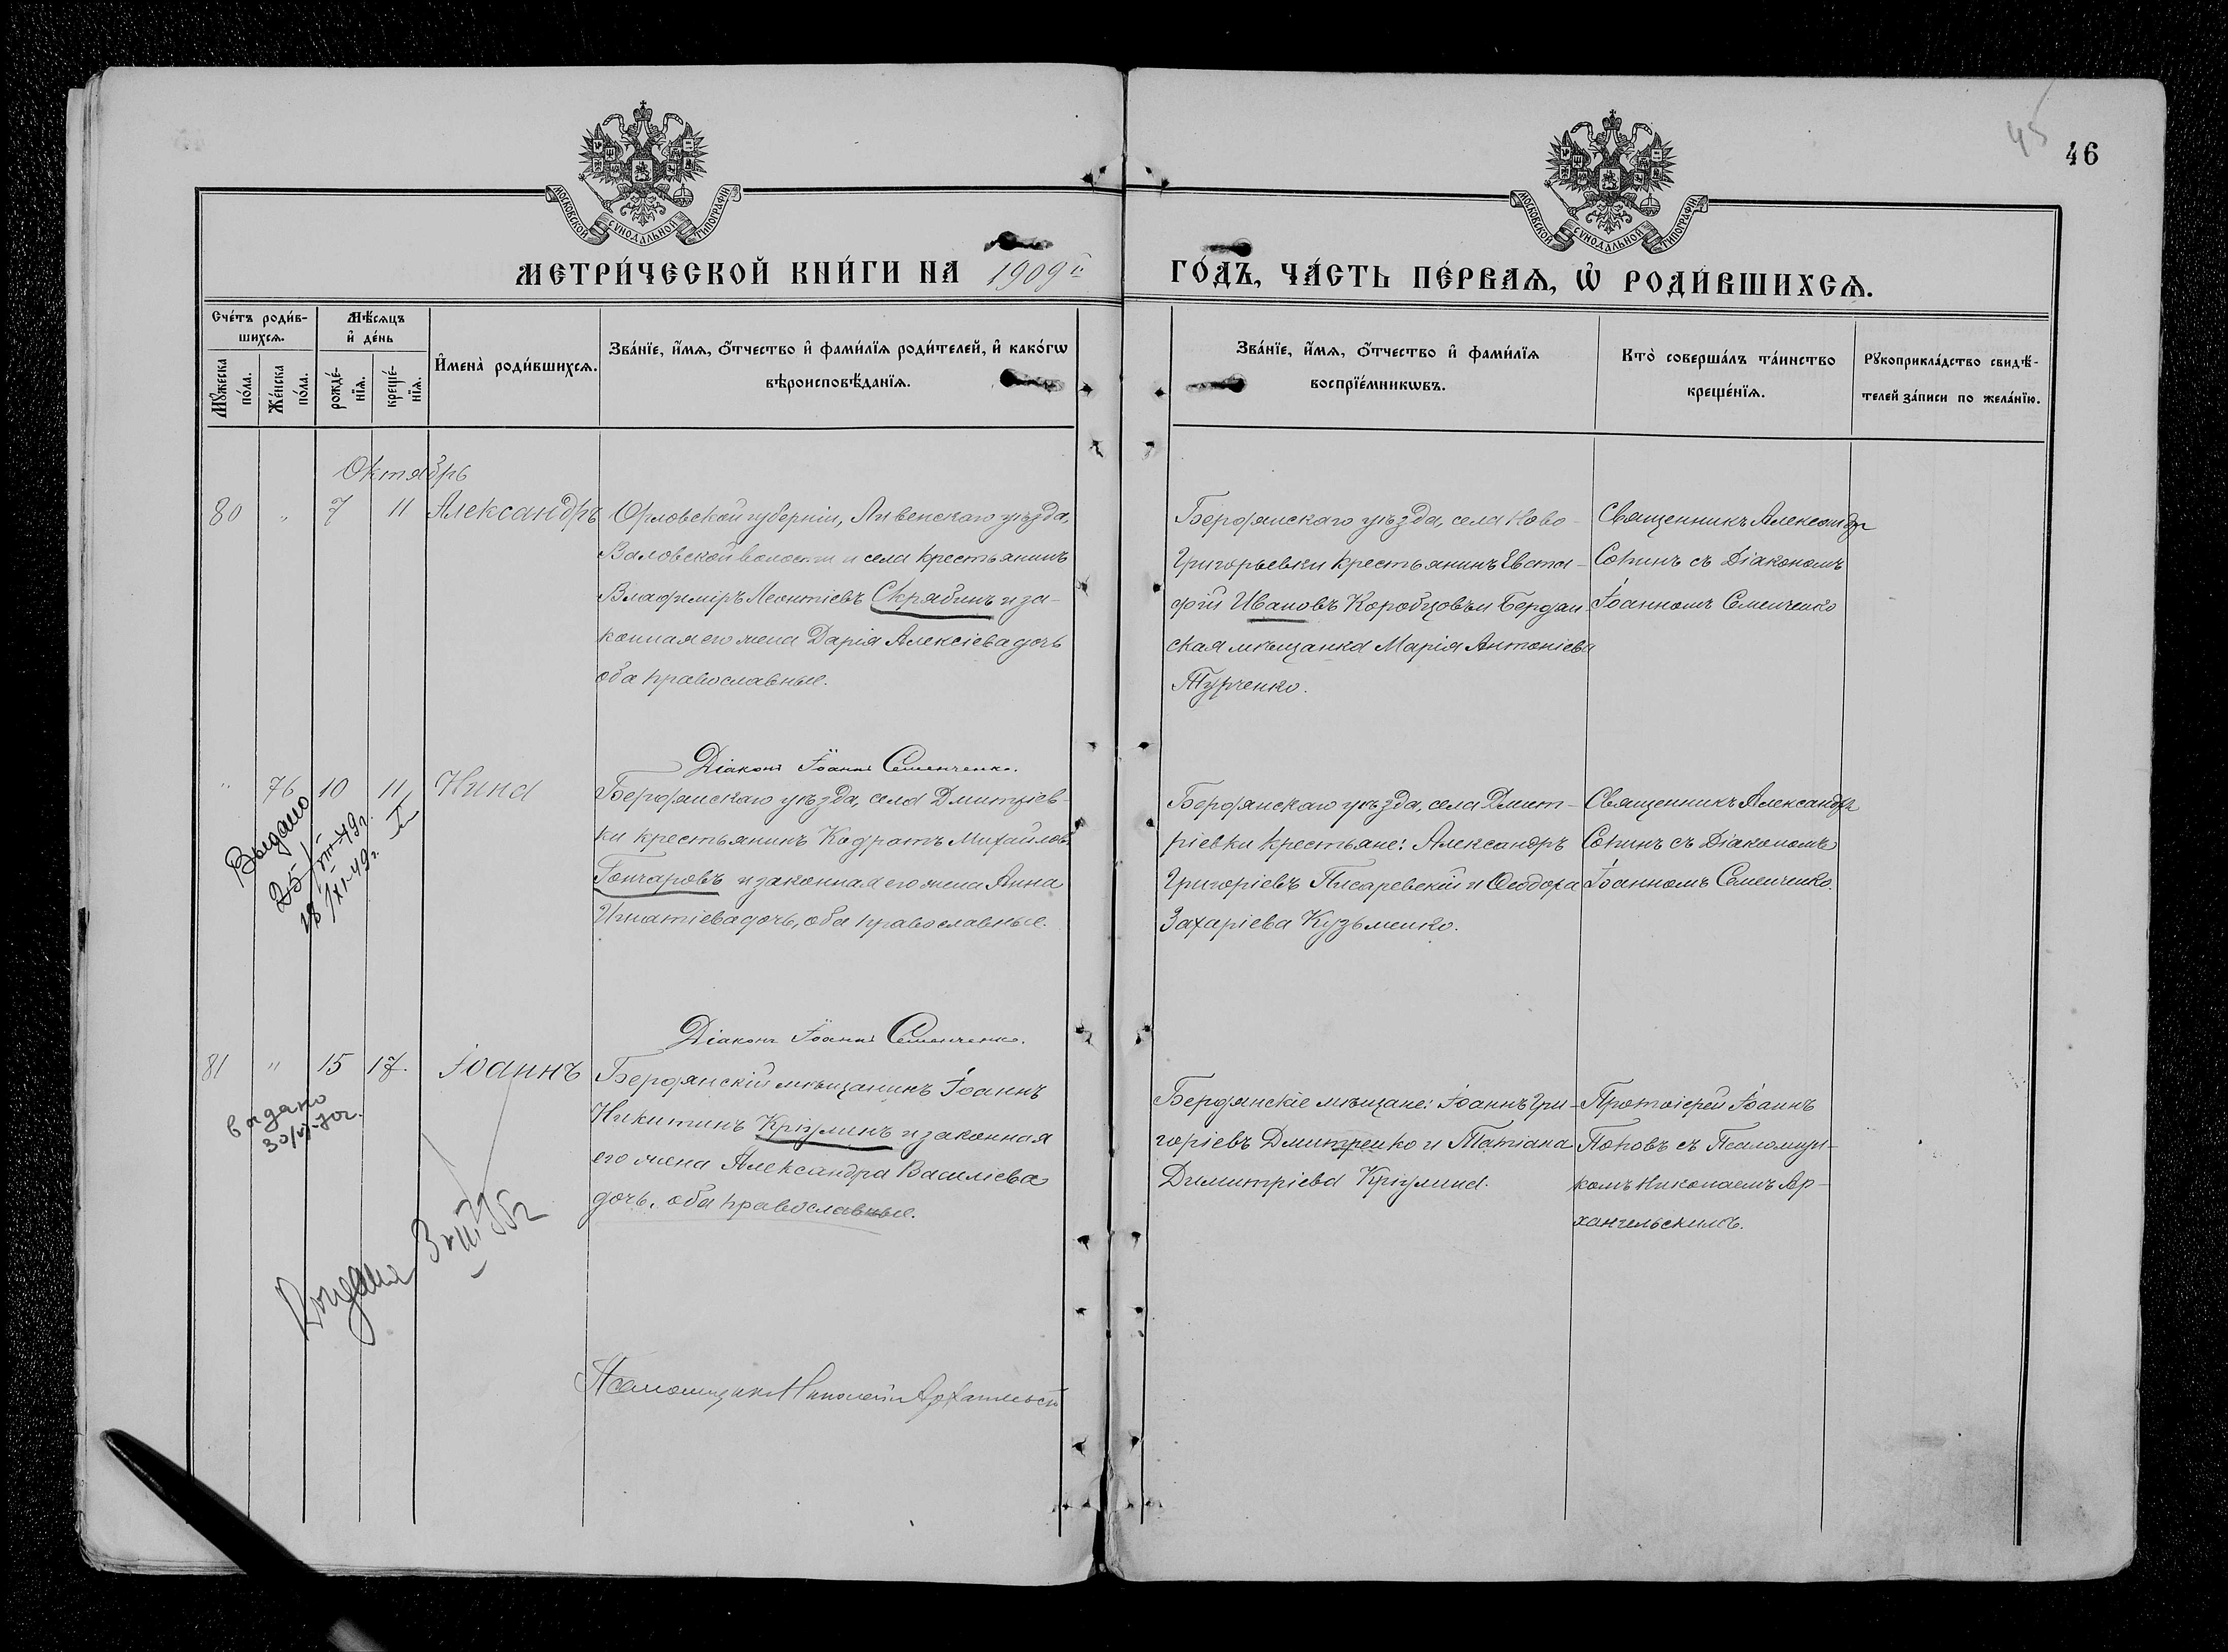 45
46
МОСКОВСКОЙ СѴНОДАЛЬНОЙ ТИПОГРАФІИ
МОСКОВСКОЙ СѴНОДАЛЬНОЙ ТИПОГРАФІИ
МЕТРИ́ЧЕСКОЙ КНИ́ГИ НА 1909й ГО́ДЪ, ЧА́СТЬ ПЕ́РВАѦ, Ѿ РОДИ́ВШИХСѦ.
Сче́тъ роди́в-
шихсѧ.
Мꙋ́жеска по́ла.
Же́нска по́ла.
Мѣ́сѧцъ
и҆ де́нь
рожде́-
нїѧ.
креще́-
нїѧ.
И҆мена̀ роди́вшихсѧ.
Зва́нїе, и҆́мѧ, о҆́тчество и҆ фами́лїѧ роди́телей, и҆ како́гѡ
вѣроисповѣ́данїѧ.
Зва́нїе, и҆́мѧ, о҆́тчество и҆ фами́лїѧ
воспрїе́мникѡвъ.
Кто̀ соверша́лъ та́инство
креще́нїѧ.
Рꙋкоприкла́дство свидѣ́-
телей за́писи по жела́нїю.
Октябрь
80 " 7 11 Александръ
Орловской губерніи, Ливенскаго уѣзда,
Валовской волости и села крестьянинъ
Владиміръ Леонтіевъ Скрябинъ и за-
конная его жена Дарія Алексіева дочь
оба православные.
Бердянскаго уѣзда, села Ново-
Григорьевки крестьянинъ Евста-
фій Ивановъ Коробцовъ и Бердян-
ская мѣщанка Марія Антоніева
Турченко.
Священникъ Александръ
Сопинъ съ Діакономъ
Іоанномъ Семенченко
Діаконъ Іоаннъ Семенченко.
" 76 10 11 Нина
Выдано
25/VIII-49г.
18/XI-49г.
Бердянскаго уѣзда, села Дмитріев-
ки крестьянинъ Кодратъ Михайловъ
Гончаровъ и законная его жена Анна
Игнатіева дочь, оба православные.
Бердянскаго уѣзда, села Дмит-
ріевки крестьяне: Александръ
Григоріевъ Писаревскій и Ѳеодора
Захаріева Кузьменко.
Священникъ Александръ
Сопинъ съ Діакономъ
Іоанномъ Семенченко.
Діаконъ Іоаннъ Семенченко.
81 " 15 17. Іоаннъ
выдано
Бердянскій мѣщанинъ Іоаннъ
Никитинъ Кріулинъ и законная
его жена Александра Василіева
дочь, оба православные.
Бердянскіе мѣщане: Іоаннъ Гри-
горіевъ Дмитренко и Татіана
Димитріева Кріулина.
Протоіерей Іоаннъ
Поповъ съ Псаломщи-
комъ Николаемъ Ар-
хангельскимъ.
Выдана
Псаломщикъ Николай Архангельскій